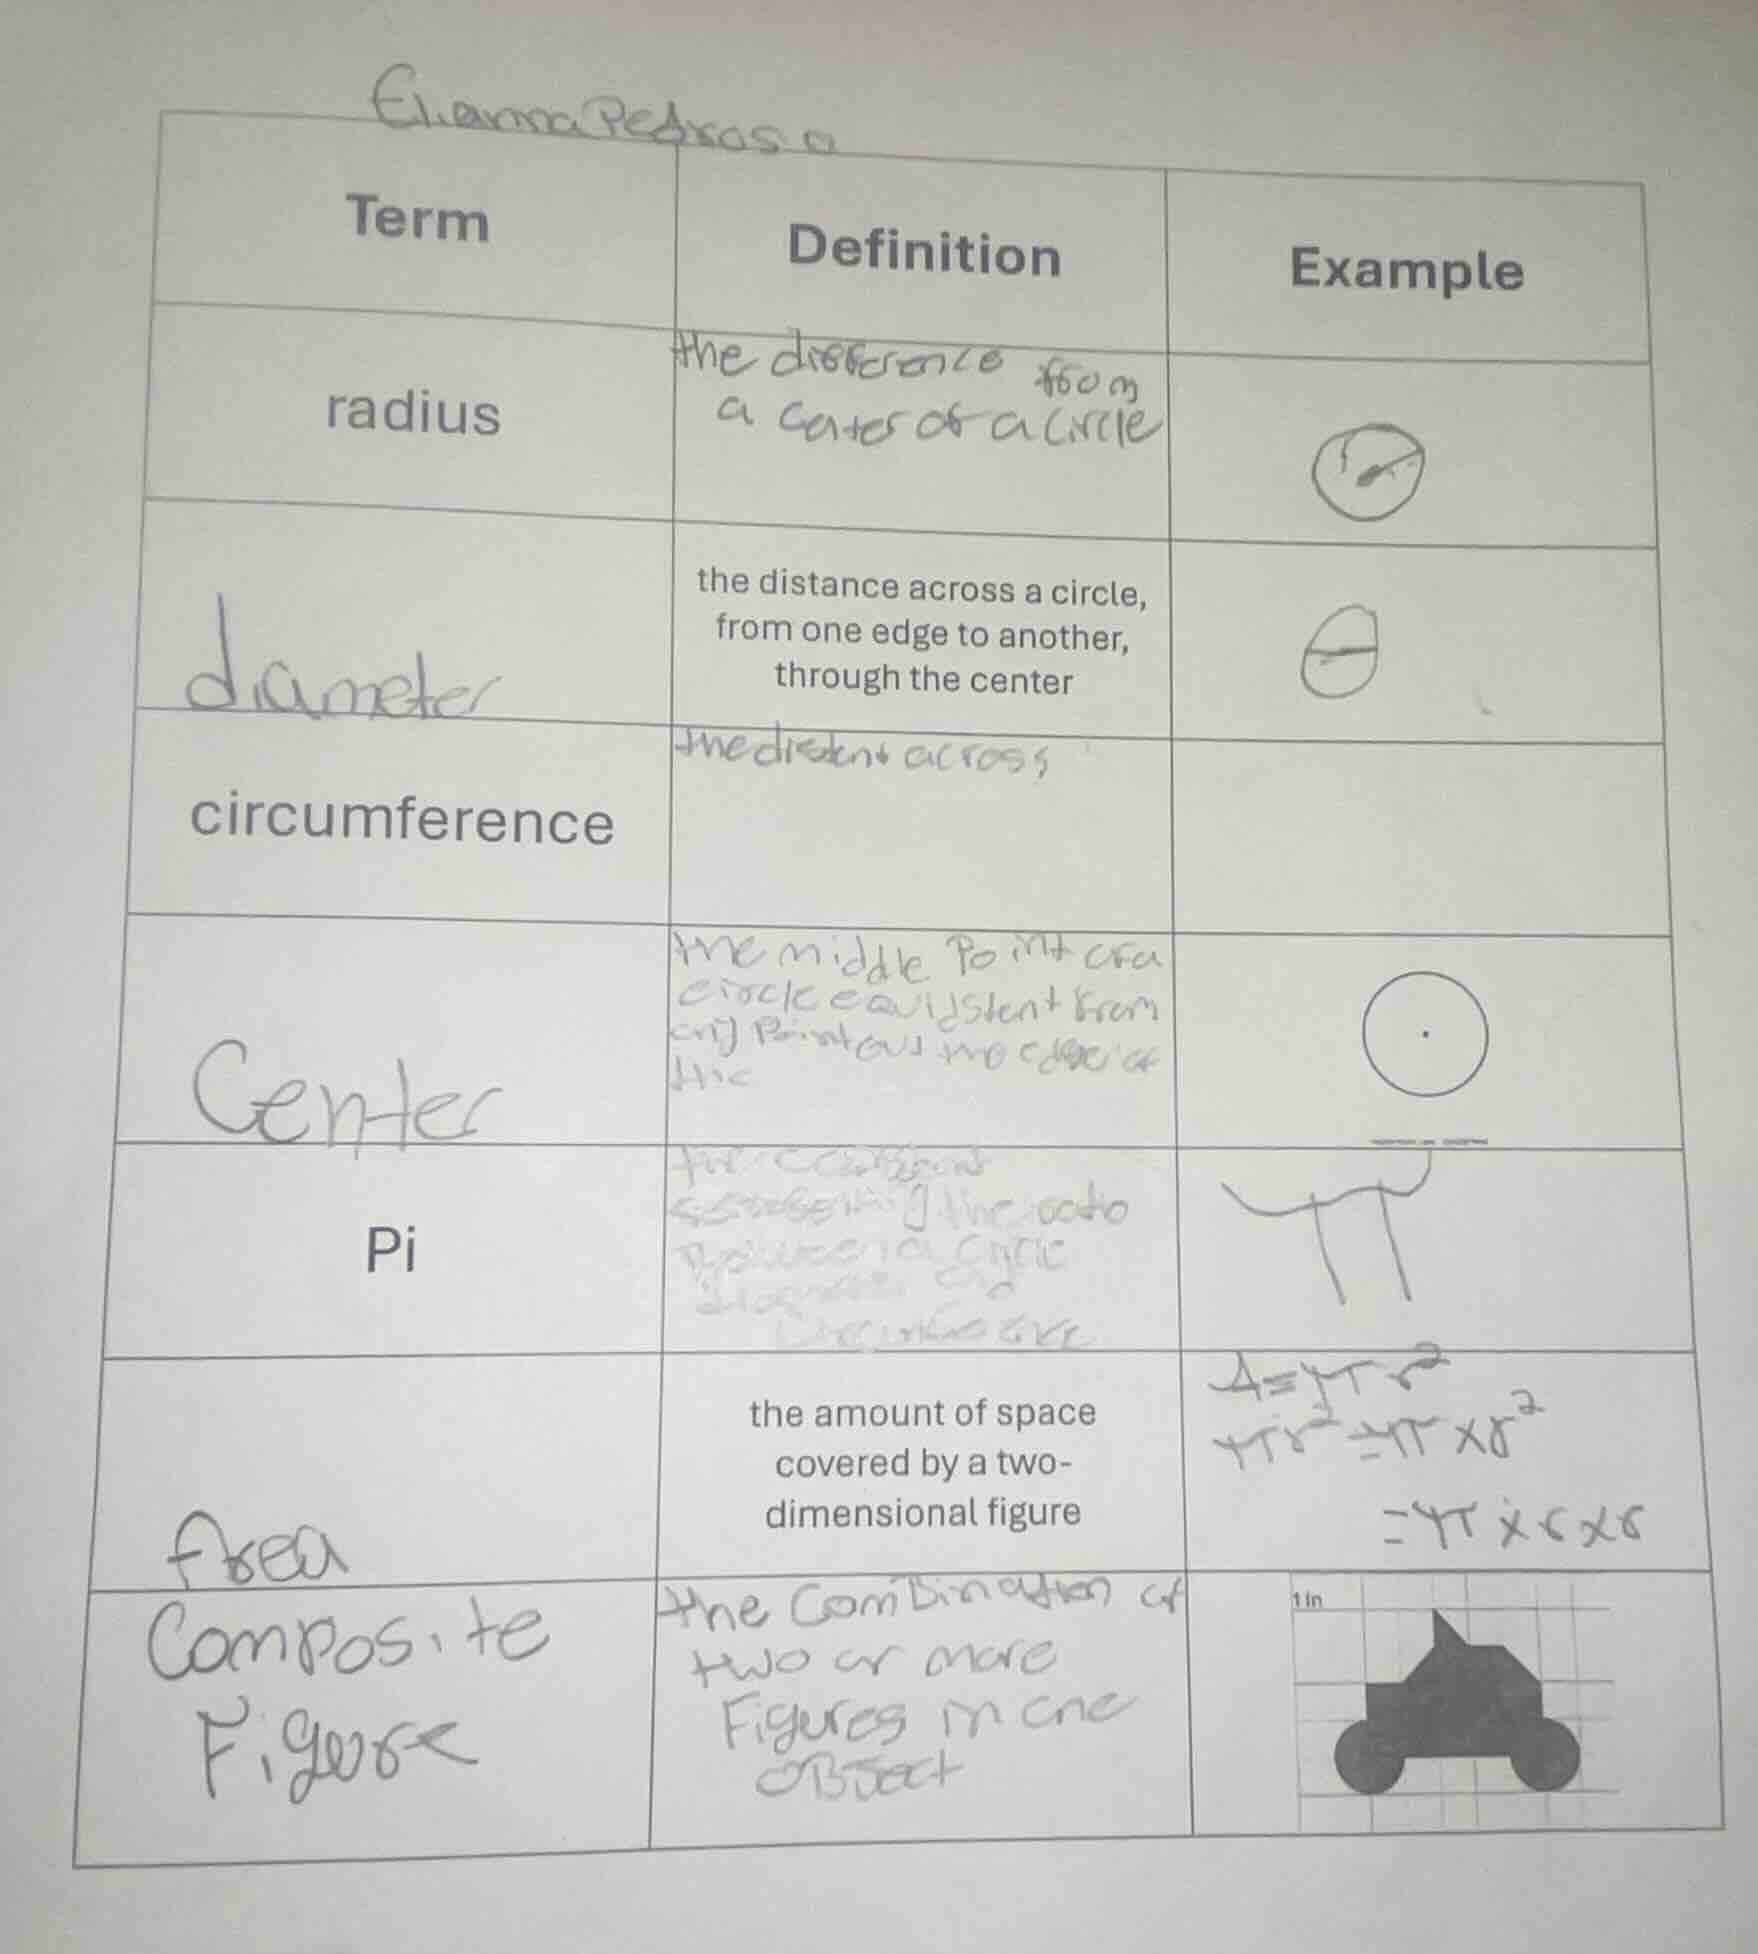 Elianna Pedrosa
Term
Definition
Example
radius
the difference from
a center of a circle
r
diameter
the distance across a circle,
from one edge to another,
through the center
circumference
the distent across
Center
the middle Point of a
circle equidstent from
any Point out the edge of
the
Pi
the constant
representing the ratio
Between a circle
diameter and
circumference
π
Area
the amount of space
covered by a two-
dimensional figure
A=πr²
πr²=π×r²
=π×r×r
Composite
Figure
the ComBination of
two or more
Figures in one
oBject
1 in